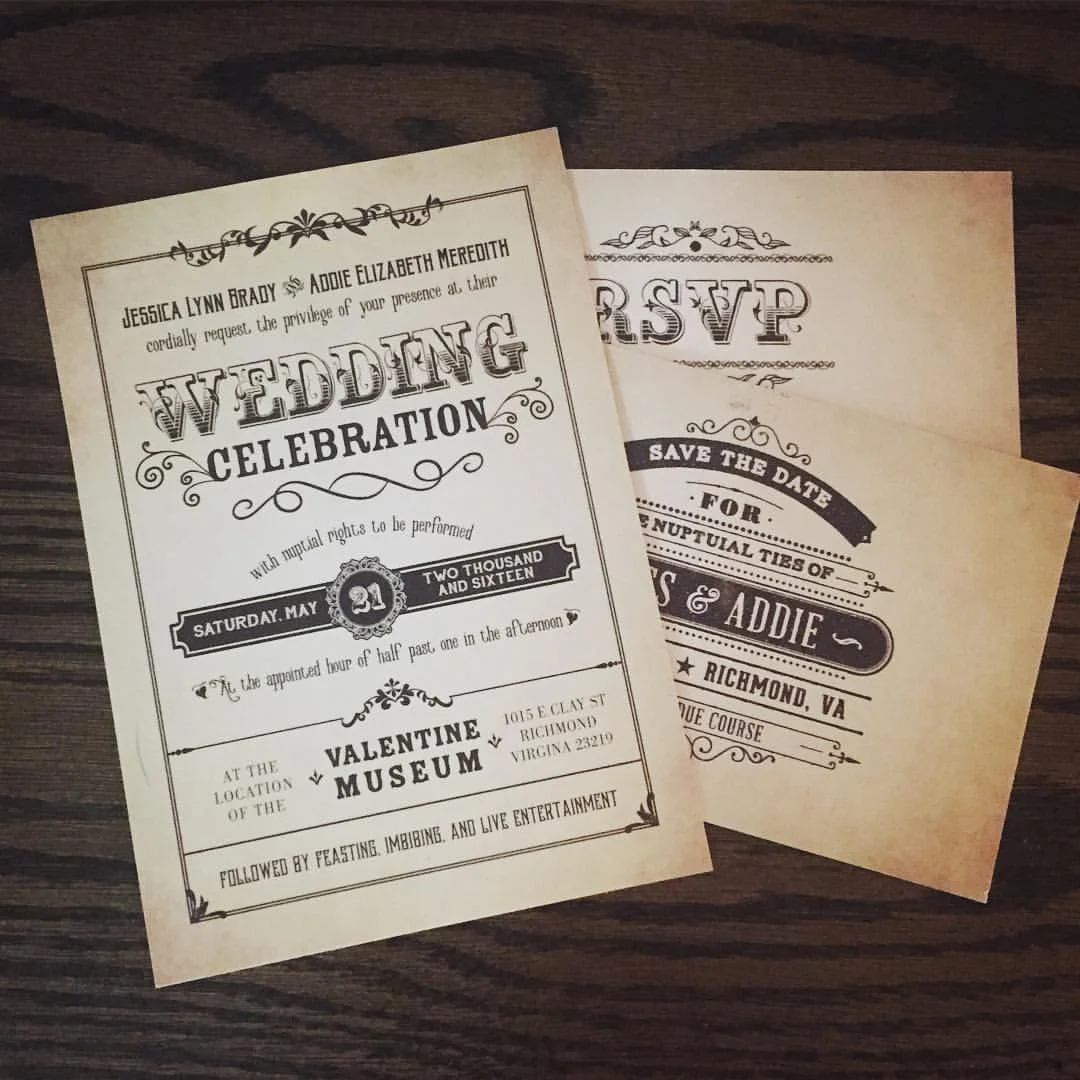 JESSICA LYNN BRADY & ADDIE ELIZABETH MEREDITH
cordially request the privilege of your presence at their
WEDDING
CELEBRATION
with nuptial rights to be performed
SATURDAY, MAY 21 TWO THOUSAND AND SIXTEEN
At the appointed hour of half past one in the afternoon
AT THE
LOCATION
OF THE
VALENTINE
MUSEUM
1015 E CLAY ST
RICHMOND
VIRGINA 23219
FOLLOWED BY FEASTING, IMBIBING, AND LIVE ENTERTAINMENT
RSVP
SAVE THE DATE
FOR
NUPTUIAL TIES OF
& ADDIE
RICHMOND, VA
COURSE